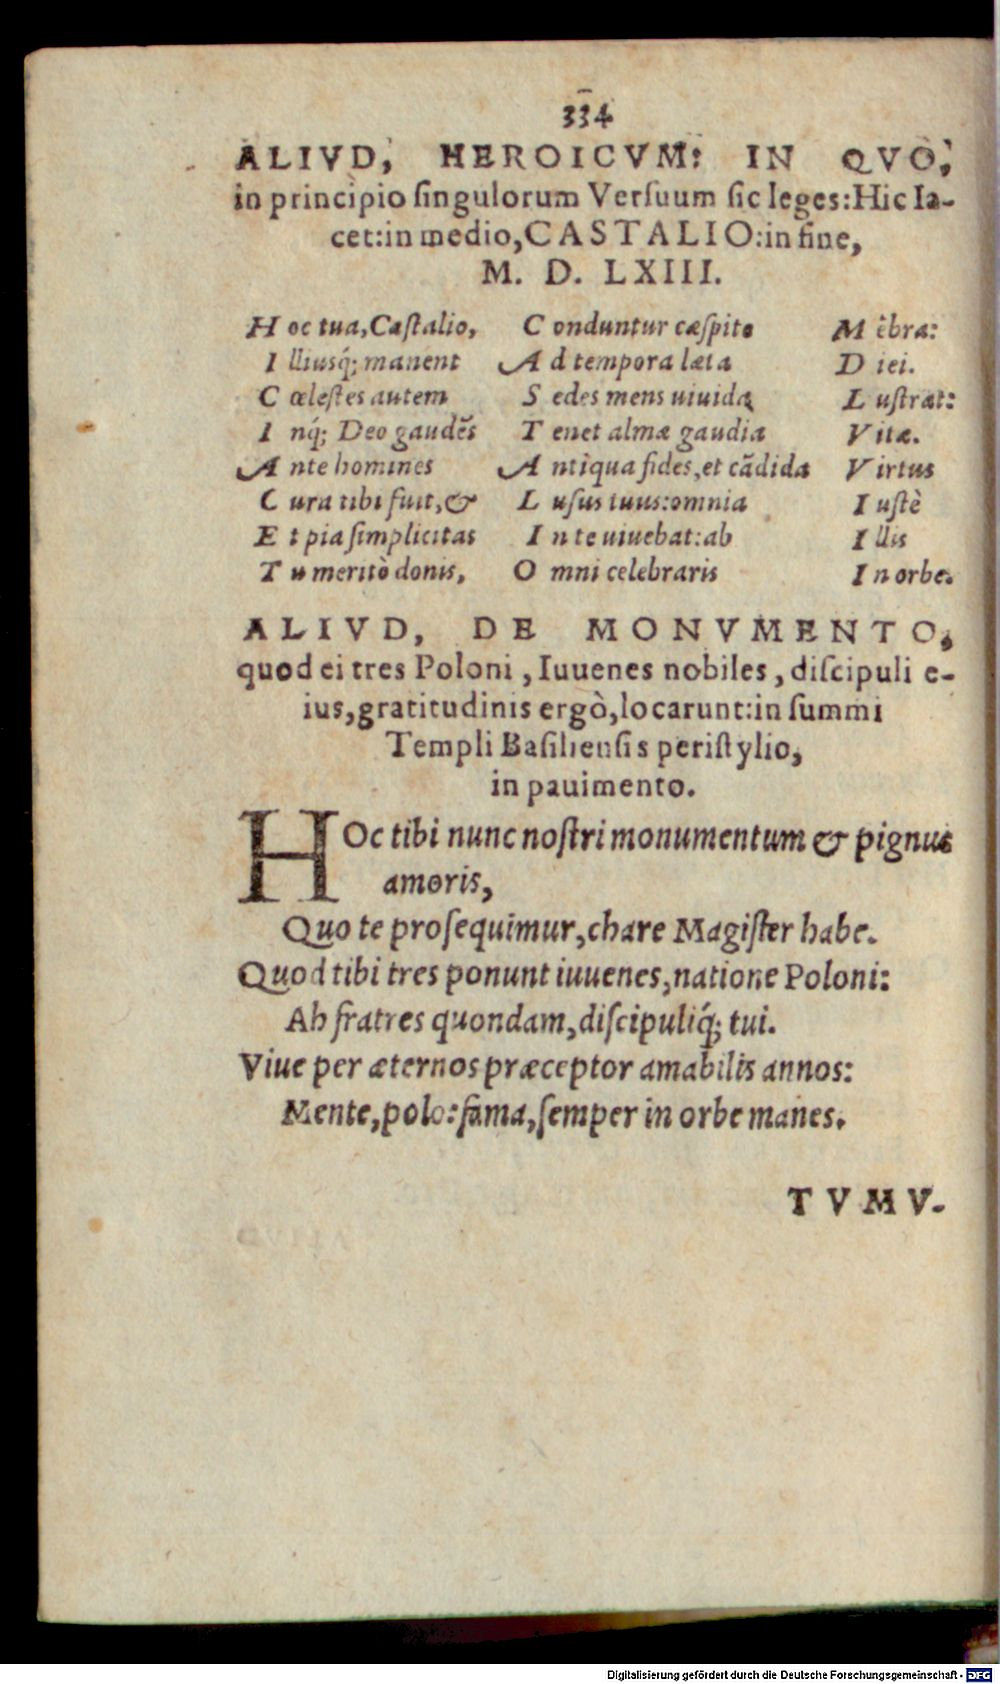 334
ALIVD, HEROICVM: IN QVO,
in principio ſingulorum Verſuum ſic leges: Hic Ia-
cet: in medio, CASTALIO: in fine,
M. D. LXIII.
H oc tua, Caſtalio, C onduntur cæſpite M ẽbra:
I lliusq́; manent A d tempora læta D iei.
C œleſtes autem S edes mens uiuida L uſtrat:
I nq́; Deo gaudẽs T enet almæ gaudia V itæ.
A nte homines A ntiqua fides, et cãdida V irtus
C ura tibi fuit, & L uſus tuus: omnia I uſtè
E t pia ſimplicitas I n te uiuebat: ab I llis
T u meritò donis, O mni celebraris I n orbe.
ALIVD, DE MONVMENTO,
quod ei tres Poloni, Iuuenes nobiles, diſcipuli e-
ius, gratitudinis ergò, locarunt: in ſummi
Templi Baſilienſis periſtylio,
in pauimento.
HOc tibi nunc noſtri monumentum & pignus
amoris,
Quo te proſequimur, chare Magiſter habe.
Quod tibi tres ponunt iuuenes, natione Poloni:
Ah fratres quondam, diſcipuliq́; tui.
Viue per æternos præceptor amabilis annos:
Mente, polo: fama, ſemper in orbe manes.
TVMV-
Digitalisierung gefördert durch die Deutsche Forschungsgemeinschaft - DFG